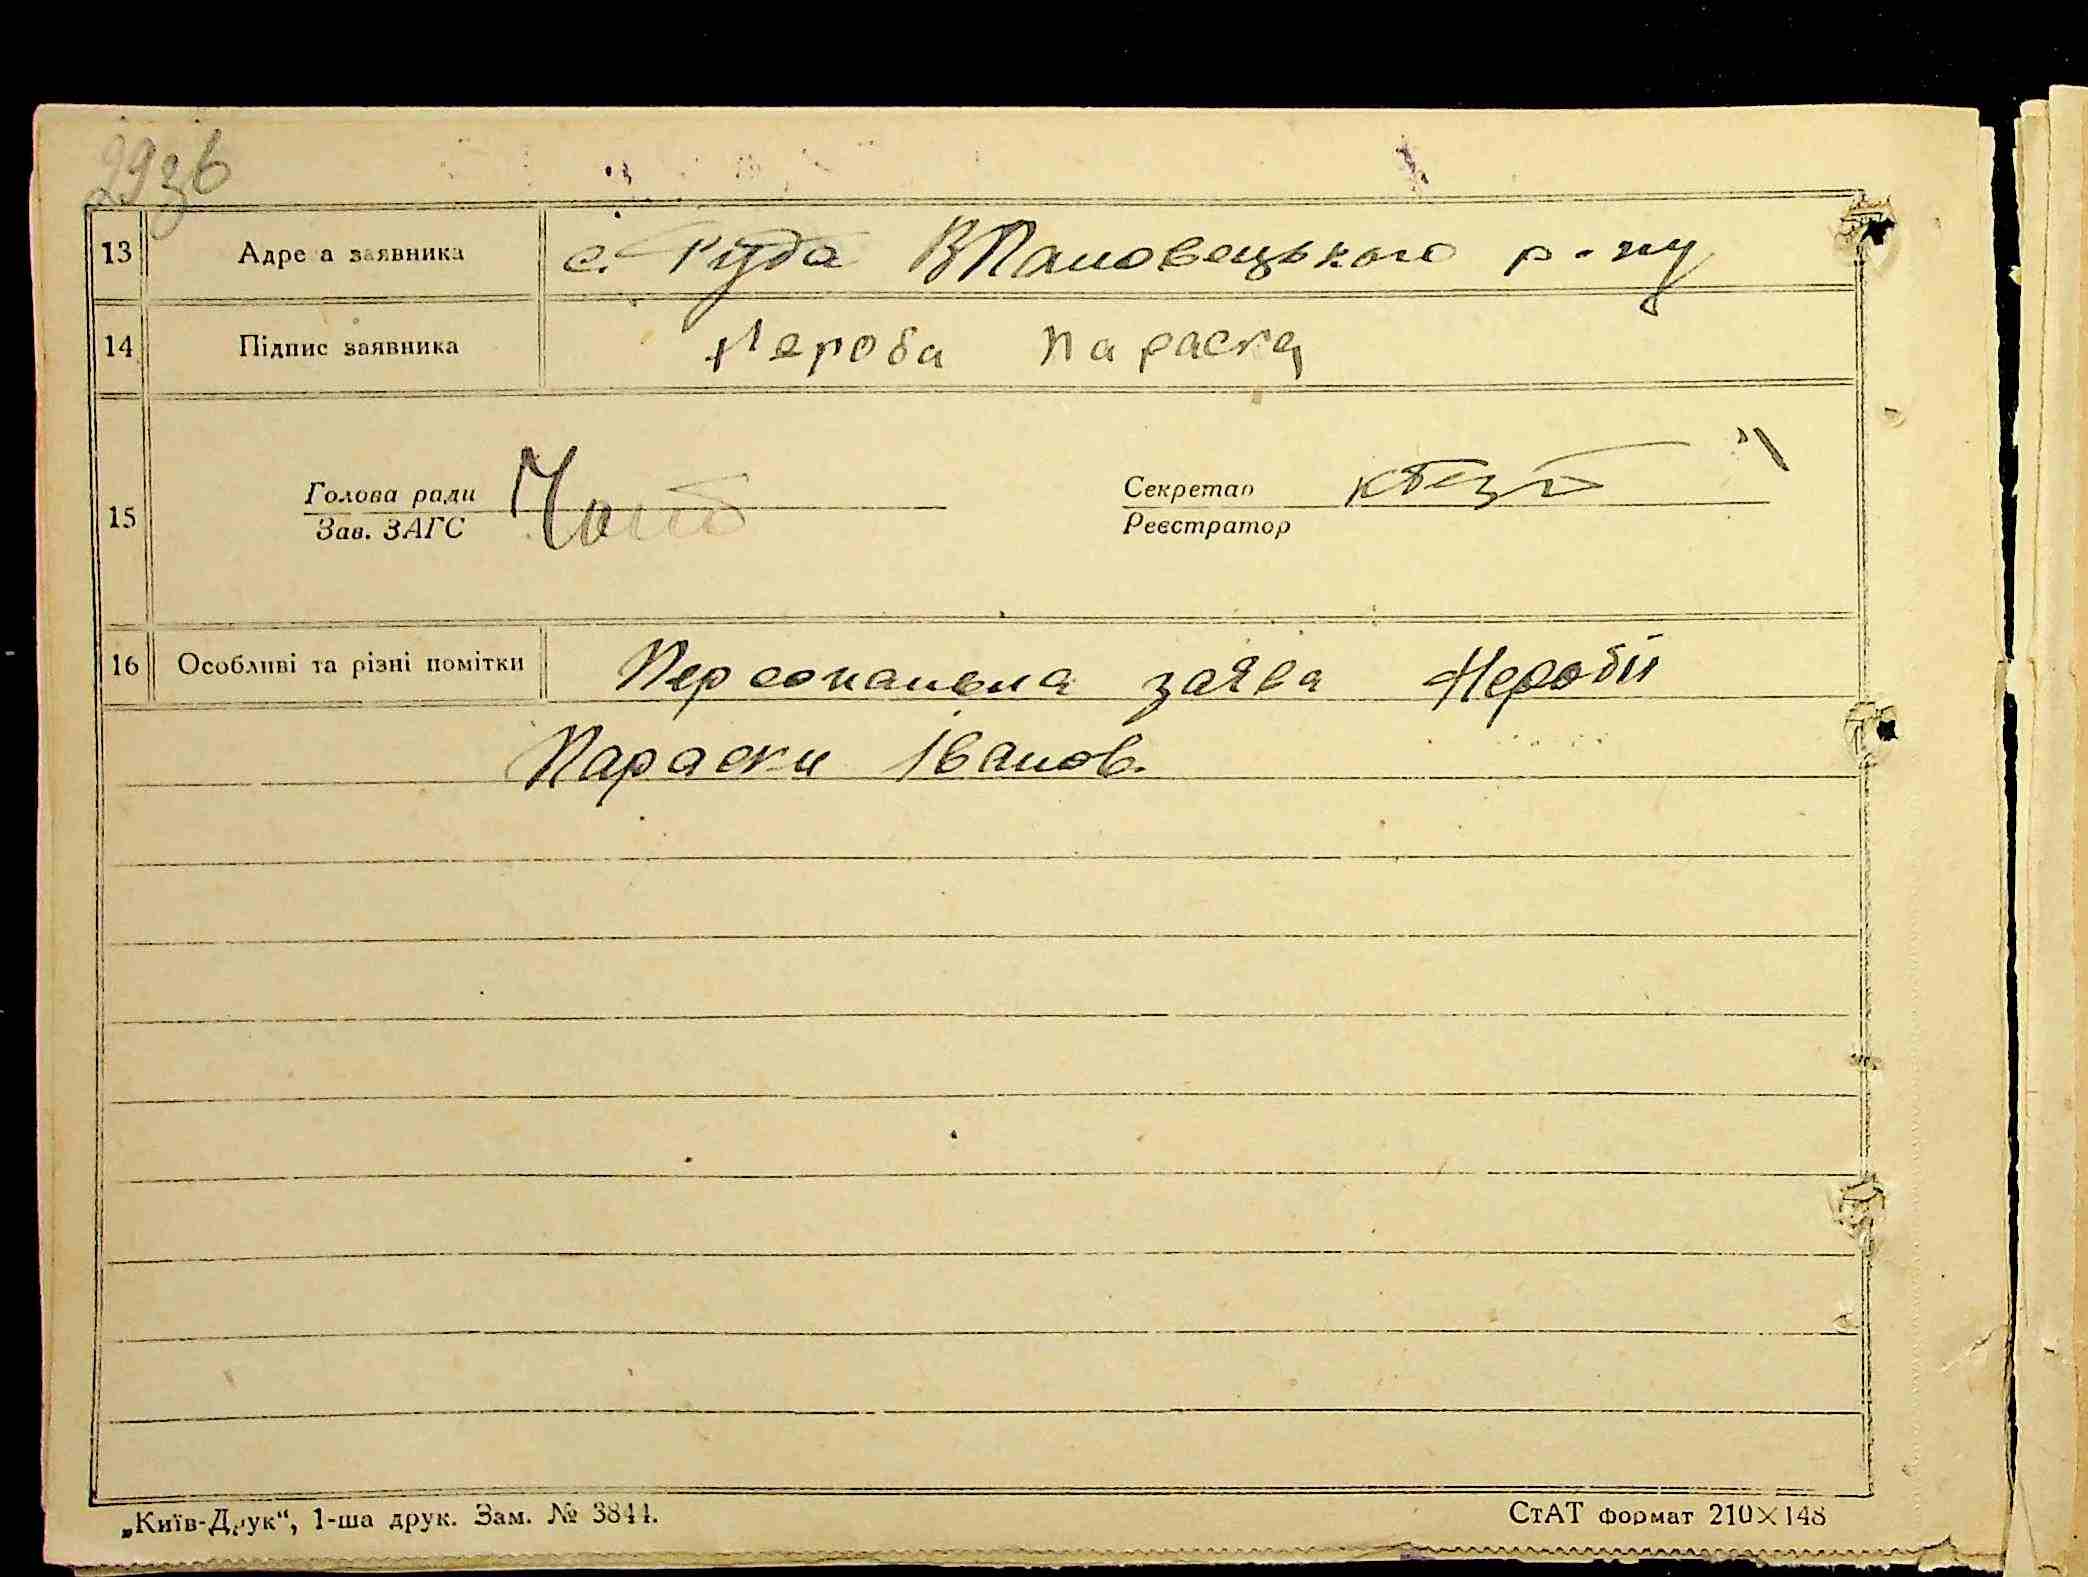 29зв
13 Адреса заявника с. Руда В Половецького р-ну
14 Підпис заявника Нероба Параска
15 Голова ради Секретар
Зав. ЗАГС Реєстратор
16 Особливі та різні помітки Персональна заява Нероби
Параски Іванов.
„Київ-Друк“, 1-ша друк. Зам. № 3844. СтАТ формат 210×148